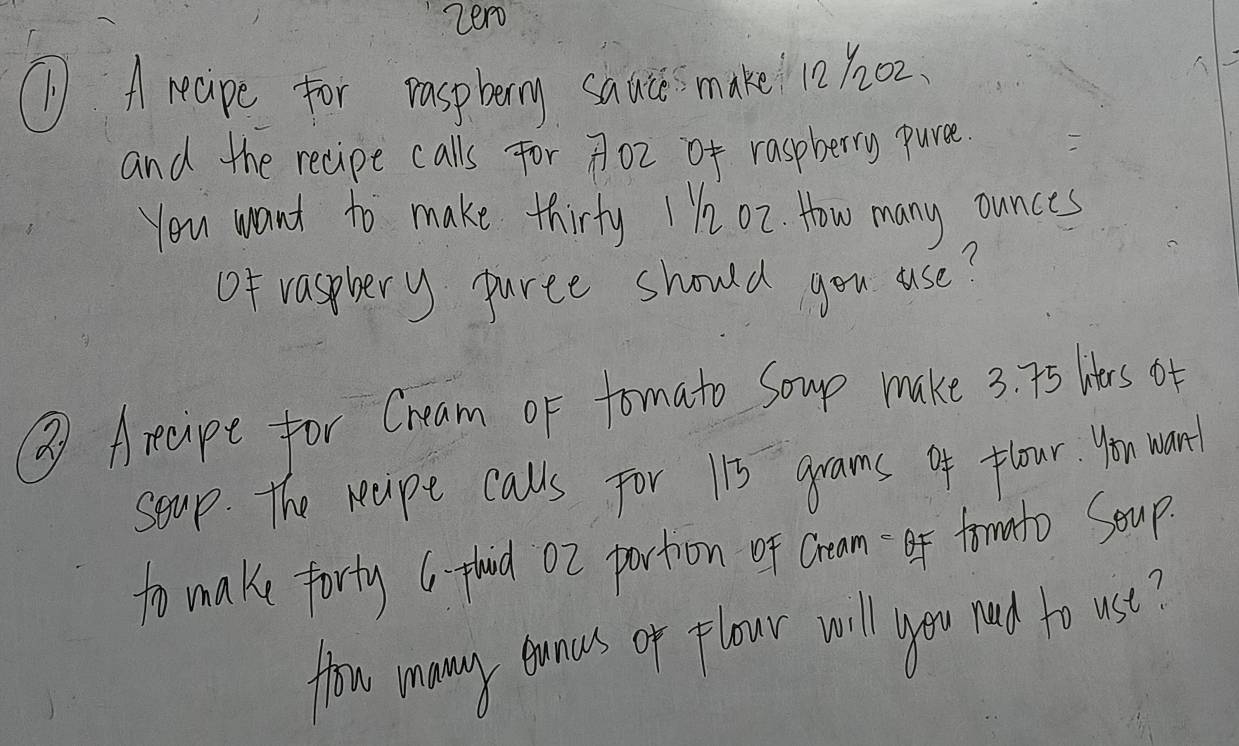 zero
① A recipe for raspberry sauce make 12 1/2 oz.
and the recipe calls for 7 oz of raspberry puree.
You want to make thirty 1 1/2 oz. How many ounces
of raspbery puree should you use?
② A recipe for Cream of tomato Soup make 3.75 liters of
soup. The recipe calls for 115 grams of flour. You want
to make forty 6-fluid oz portion of Cream-of tomato Soup.
How many ounces of flour will you need to use?